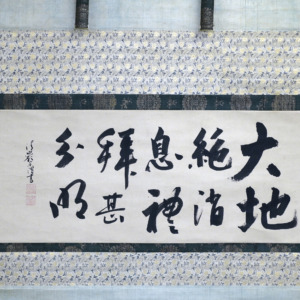 大地
絶消
息禮
拝甚
分明